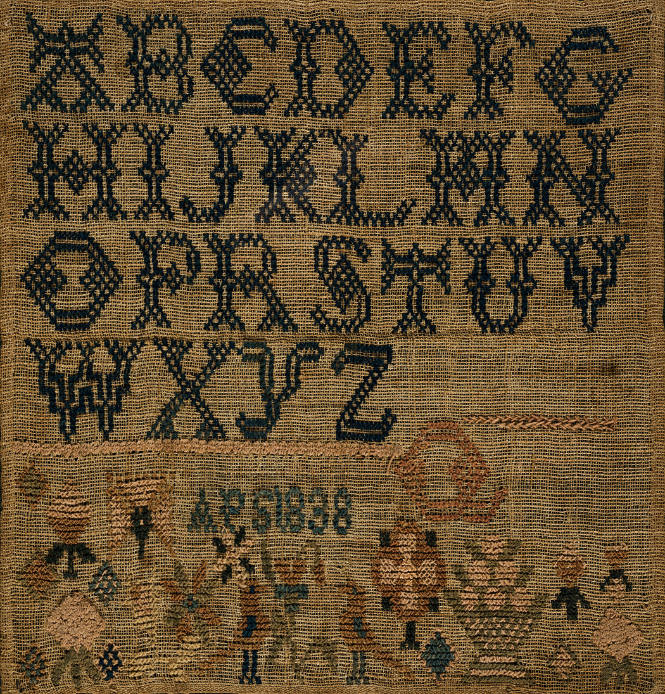 ABCDEFG
HIJKLMN
OPRSTUV
WXYZ
Q
APS1838